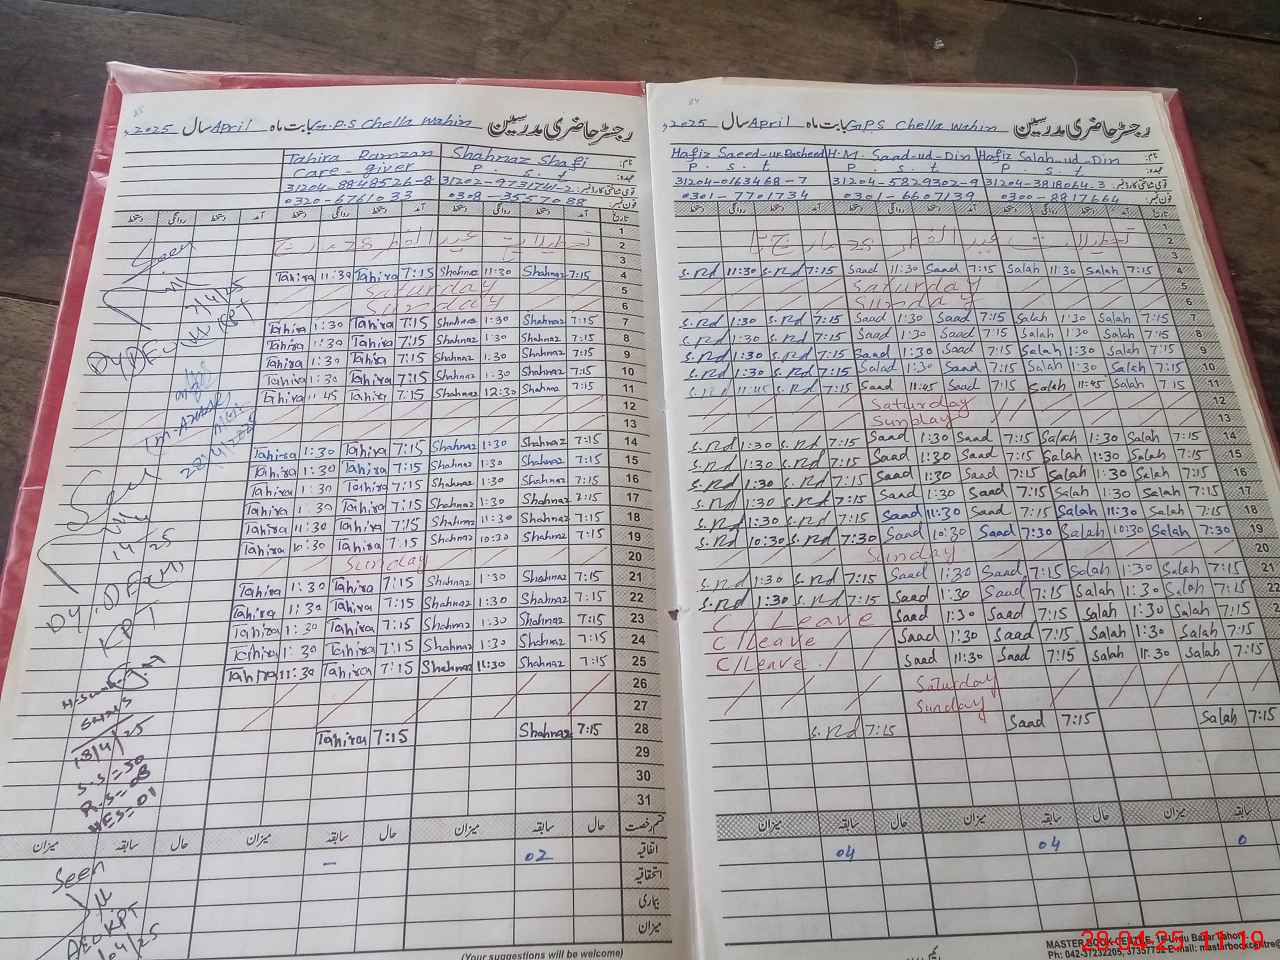 رجسٹر حاضری مدرسین G.P.S Chella Wahin بابت ماہ April سال 2025ء
Tahira Ramzan Shahnaz Shafi
Care-giver P. S. t
31204-8848526-8 31202-9731741-2
0320-6761033 0308-3557088
تاریخ دستخط روانگی دستخط آمد دستخط روانگی دستخط آمد
1
2
3
Tahira 11:30 Tahira 7:15 Shahnaz 11:30 Shahnaz 7:15 4
Saturday 5
Sunday 6
Tahira 1:30 Tahira 7:15 Shahnaz 1:30 Shahnaz 7:15 7
Tahira 1:30 Tahira 7:15 Shahnaz 1:30 Shahnaz 7:15 8
Tahira 1:30 Tahira 7:15 Shahnaz 1:30 Shahnaz 7:15 9
Tahira 1:30 Tahira 7:15 Shahnaz 1:30 Shahnaz 7:15 10
Tahira 11:45 Tahira 7:15 Shahnaz 12:30 Shahnaz 7:15 11
12
13
Tahira 1:30 Tahira 7:15 Shahnaz 1:30 Shahnaz 7:15 14
Tahira 1:30 Tahira 7:15 Shahnaz 1:30 Shahnaz 7:15 15
Tahira 1:30 Tahira 7:15 Shahnaz 1:30 Shahnaz 7:15 16
Tahira 1:30 Tahira 7:15 Shahnaz 1:30 Shahnaz 7:15 17
Tahira 11:30 Tahira 7:15 Shahnaz 11:30 Shahnaz 7:15 18
Tahira 10:30 Tahira 7:15 Shahnaz 10:30 Shahnaz 7:15 19
Sunday 20
Tahira 1:30 Tahira 7:15 Shahnaz 1:30 Shahnaz 7:15 21
Tahira 1:30 Tahira 7:15 Shahnaz 1:30 Shahnaz 7:15 22
Tahira 1:30 Tahira 7:15 Shahnaz 1:30 Shahnaz 7:15 23
Tahira 1:30 Tahira 7:15 Shahnaz 1:30 Shahnaz 7:15 24
Tahira 11:30 Tahira 7:15 Shahnaz 11:30 Shahnaz 7:15 25
26
27
Tahira 7:15 Shahnaz 7:15 28
29
30
31
قسم رخصت حال سابقہ میزان حال سابقہ میزان حال سابقہ میزان
اتفاقیہ 02 –
استحقاقیہ
بیماری
میزان
(Your suggestions will be welcome)
Seen
14/25
KPT
28/4/2025
Seen
14 25
Dy. DEO
KPT
18/4/25
S.S=30
R.S=08
Seen
AEO KPT
رجسٹر حاضری مدرسین GPS Chella Wahin بابت ماہ April سال 2025ء
نام: Hafiz Saeed-ur-Rasheed H.M. Saad-ud-Din Hafiz Salah-ud-Din
عہدہ: P. S. t P. S. t P. S. t
قومی شناختی کارڈ نمبر: 31204-0163468-7 31204-5829302-9 31204-3818064-3
فون نمبر: 0301-7701734 0301-6607139 0300-8817664
تاریخ دستخط روانگی دستخط آمد دستخط روانگی دستخط آمد دستخط روانگی دستخط آمد
1
2
3
S.Rd 11:30 S.Rd 7:15 Saad 11:30 Saad 7:15 Salah 11:30 Salah 7:15 4
Saturday 5
Sunday 6
S.Rd 1:30 S.Rd 7:15 Saad 1:30 Saad 7:15 Salah 1:30 Salah 7:15 7
S.Rd 1:30 S.Rd 7:15 Saad 1:30 Saad 7:15 Salah 1:30 Salah 7:15 8
S.Rd 1:30 S.Rd 7:15 Saad 1:30 Saad 7:15 Salah 1:30 Salah 7:15 9
S.Rd 1:30 S.Rd 7:15 Saad 1:30 Saad 7:15 Salah 1:30 Salah 7:15 10
S.Rd 11:45 S.Rd 7:15 Saad 11:45 Saad 7:15 Salah 11:45 Salah 7:15 11
Saturday 12
Sunday 13
S.Rd 1:30 S.Rd 7:15 Saad 1:30 Saad 7:15 Salah 1:30 Salah 7:15 14
S.Rd 1:30 S.Rd 7:15 Saad 1:30 Saad 7:15 Salah 1:30 Salah 7:15 15
S.Rd 1:30 S.Rd 7:15 Saad 1:30 Saad 7:15 Salah 1:30 Salah 7:15 16
S.Rd 1:30 S.Rd 7:15 Saad 1:30 Saad 7:15 Salah 1:30 Salah 7:15 17
S.Rd 11:30 S.Rd 7:15 Saad 11:30 Saad 7:15 Salah 11:30 Salah 7:15 18
S.Rd 10:30 S.Rd 7:30 Saad 10:30 Saad 7:30 Salah 10:30 Salah 7:30 19
Sunday 20
S.Rd 1:30 S.Rd 7:15 Saad 1:30 Saad 7:15 Salah 1:30 Salah 7:15 21
S.Rd 1:30 S.Rd 7:15 Saad 1:30 Saad 7:15 Salah 1:30 Salah 7:15 22
C/Leave Saad 1:30 Saad 7:15 Salah 1:30 Salah 7:15
C/Leave Saad 1:30 Saad 7:15 Salah 1:30 Salah 7:15
C/Leave Saad 11:30 Saad 7:15 Salah 11:30 Salah 7:15
Saturday
Sunday
S.Rd 7:15 Saad 7:15 Salah 7:15
سابقہ میزان حال سابقہ میزان حال سابقہ میزان
04 04 0
MASTER BOOK CENTRE, 16 Urdu Bazar Lahore
Ph: 042-37232205, 37357752 E-mail: masterbookcentre@
28.04.25 11:19